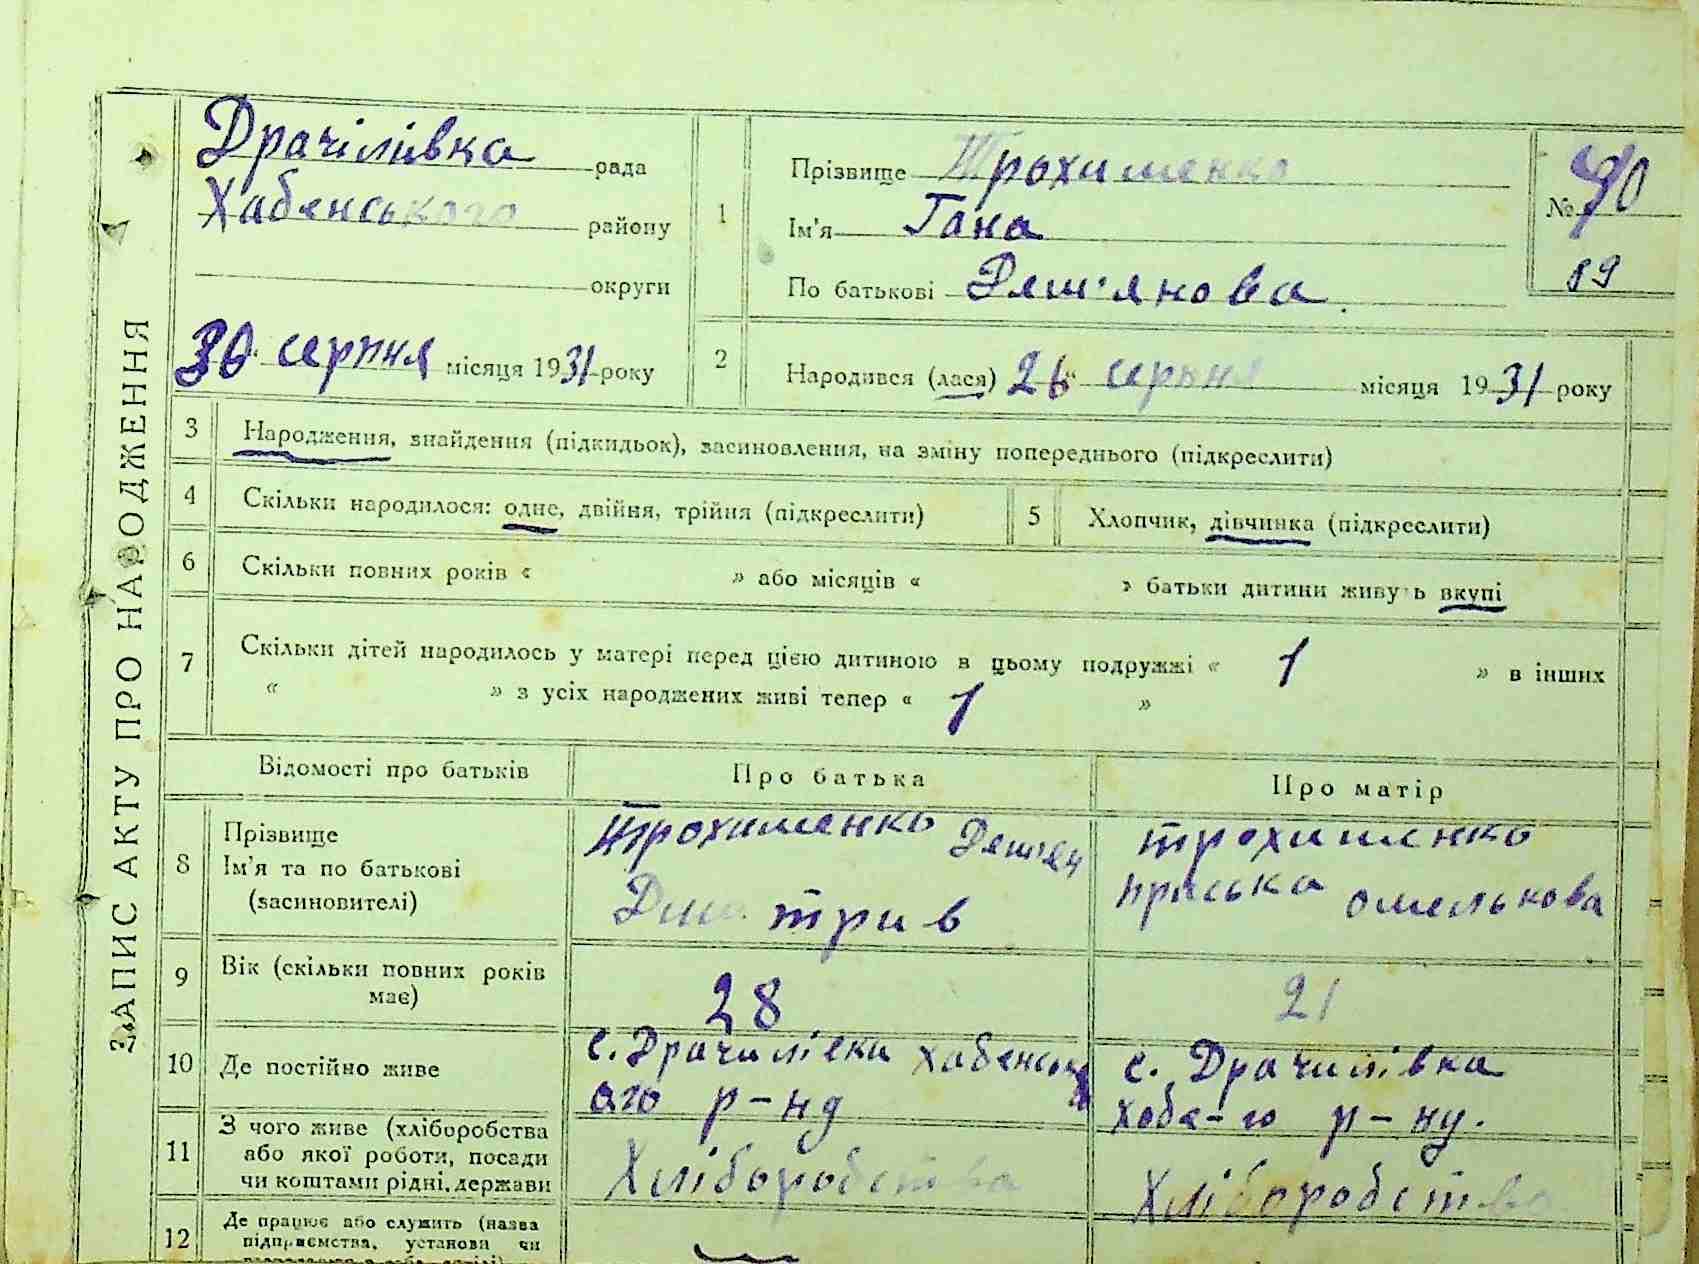 ЗАПИС АКТУ ПРО НАРОДЖЕННЯ
Драчілівка рада
Хабенського району
округи
30 серпня місяця 1931 року
1
Прізвище Трохименко
Ім'я Гана
По батькові Дем'янова
№ 90
89
2
Народився (лася) 26 " серпня місяця 1931 року
3 Народження, знайдення (підкидьок), засиновлення, на зміну попереднього (підкреслити)
4 Скільки народилося: одне, двійня, трійня (підкреслити)
5 Хлопчик, дівчинка (підкреслити)
6 Скільки повних років « » або місяців « » батьки дитини живуть вкупі
7 Скільки дітей народилось у матері перед цією дитиною в цьому подружжі « 1 » в інших
« » з усіх народжених живі тепер « 1 »
Відомості про батьків Про батька Про матір
8
Прізвище
Ім'я та по батькові
(засиновителі)
Трохименко Дем'ян
Дмитрив
Трохименко
Приська Омелькова
9 Вік (скільки повних років
має)
28
21
10 Де постійно живе
с. Драчилівка Хабенськ
ого р-ну
с. Драчилівка
Хабе-го р-ну.
11
З чого живе (хліборобства
або якої роботи, посади
чи коштами рідні, держави
Хліборобства
Хліборобство
12
Де працює або служить (назва
підприємства, установи чи